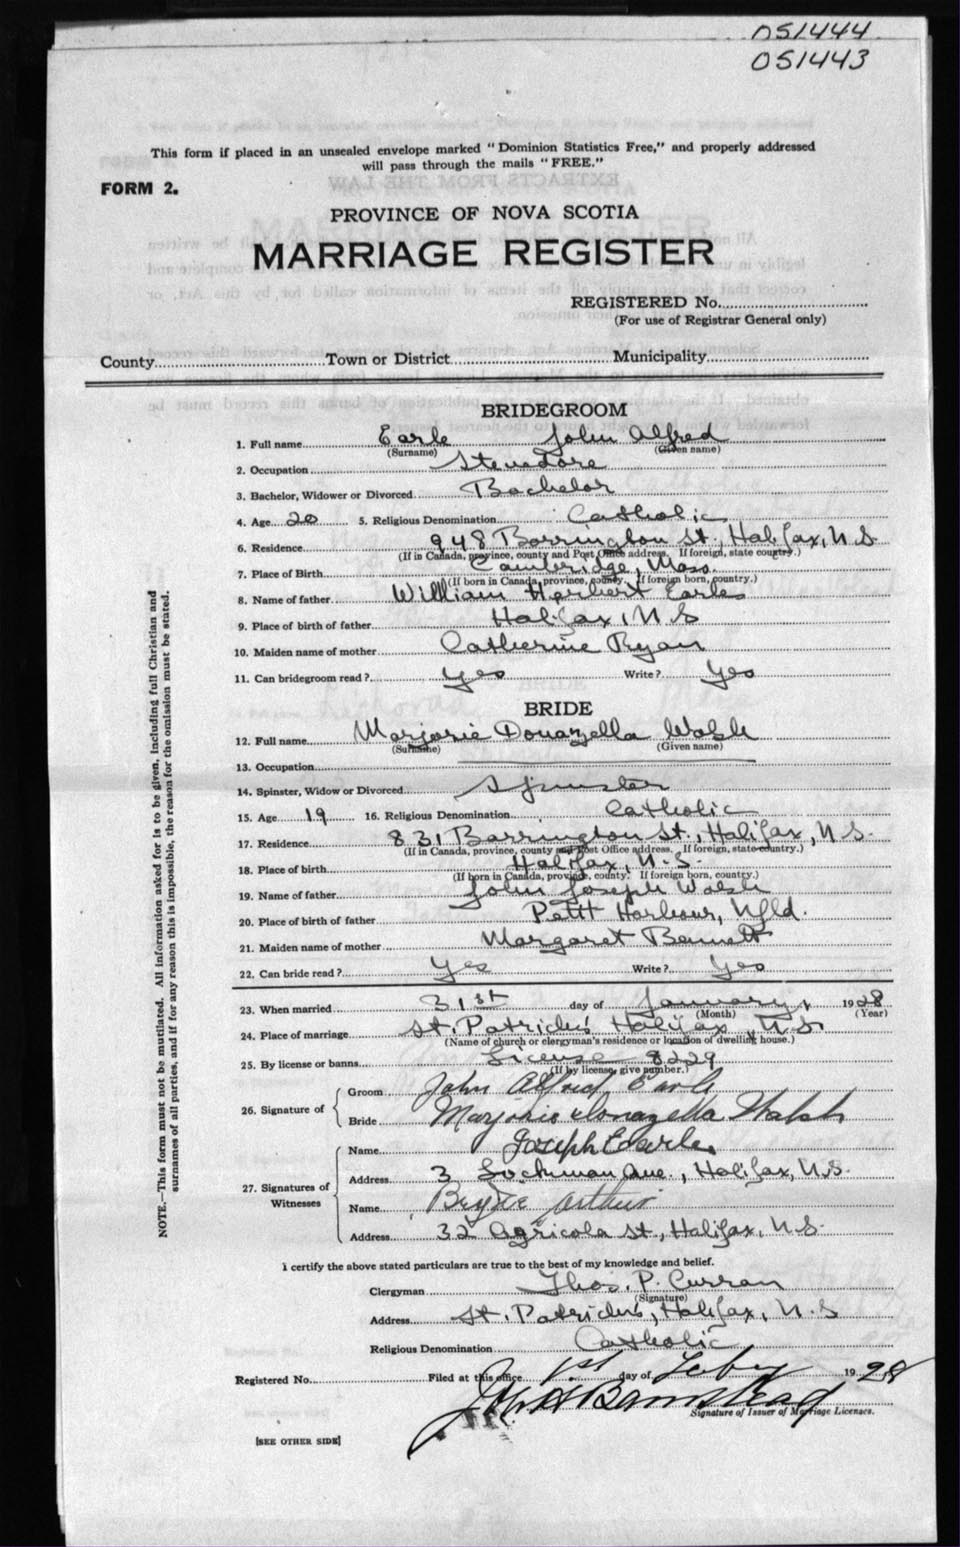 051444
051443
This form if placed in an unsealed envelope marked "Dominion Statistics Free," and properly addressed
will pass through the mails "FREE."
FORM 2.
PROVINCE OF NOVA SCOTIA
MARRIAGE REGISTER
REGISTERED No.
(For use of Registrar General only)
County Town or District Municipality
BRIDEGROOM
1. Full name Earle John Alfred
(Surname) (Given name)
2. Occupation Stevedore
3. Bachelor, Widower or Divorced Bachelor
4. Age 20 5. Religious Denomination Catholic
6. Residence 948 Barrington St., Halifax, N.S.
(If in Canada, province, county and Post Office address. If foreign, state country.)
7. Place of Birth Cambridge, Mass.
(If born in Canada, province, county. If foreign born, country.)
8. Name of father William Herbert Earle
9. Place of birth of father Halifax, N.S
10. Maiden name of mother Catherine Ryan
11. Can bridegroom read? Yes Write? Yes
BRIDE
12. Full name Marjorie Donazella Walsh
(Surname) (Given name)
13. Occupation
14. Spinster, Widow or Divorced Spinster
15. Age 19 16. Religious Denomination Catholic
17. Residence 831 Barrington St., Halifax, N.S.
(If in Canada, province, county and Post Office address. If foreign, state country.)
18. Place of birth Halifax, N.S.
(If born in Canada, province, county. If foreign born, country.)
19. Name of father John Joseph Walsh
20. Place of birth of father Petit Harbour, Nfld.
21. Maiden name of mother Margaret Bennett
22. Can bride read? Yes Write? Yes
23. When married 31st day of January, 1928
(Month) (Year)
24. Place of marriage St. Patrick's Halifax, N.S
(Name of church or clergyman's residence or location of dwelling house.)
25. By license or banns License 8229
(If by license, give number.)
26. Signature of
Groom John Alfred Earle
Bride Marjorie Donazella Walsh
27. Signatures of Witnesses
Name Joseph Earle
Address 3 Lockman Ave., Halifax, N.S.
Name Arthur
Address 32 Agricola St., Halifax, N.S.
I certify the above stated particulars are true to the best of my knowledge and belief.
Clergyman Thos. P. Curran
(Signature)
Address St. Patrick's, Halifax, N.S
Religious Denomination Catholic
Registered No. Filed at this office 1st day of Feby 1928
Signature of Issuer of Marriage Licenses.
[SEE OTHER SIDE]
NOTE.—This form must not be mutilated. All information asked for is to be given, including full Christian and
surnames of all parties, and if for any reason this is impossible, the reason for the omission must be stated.